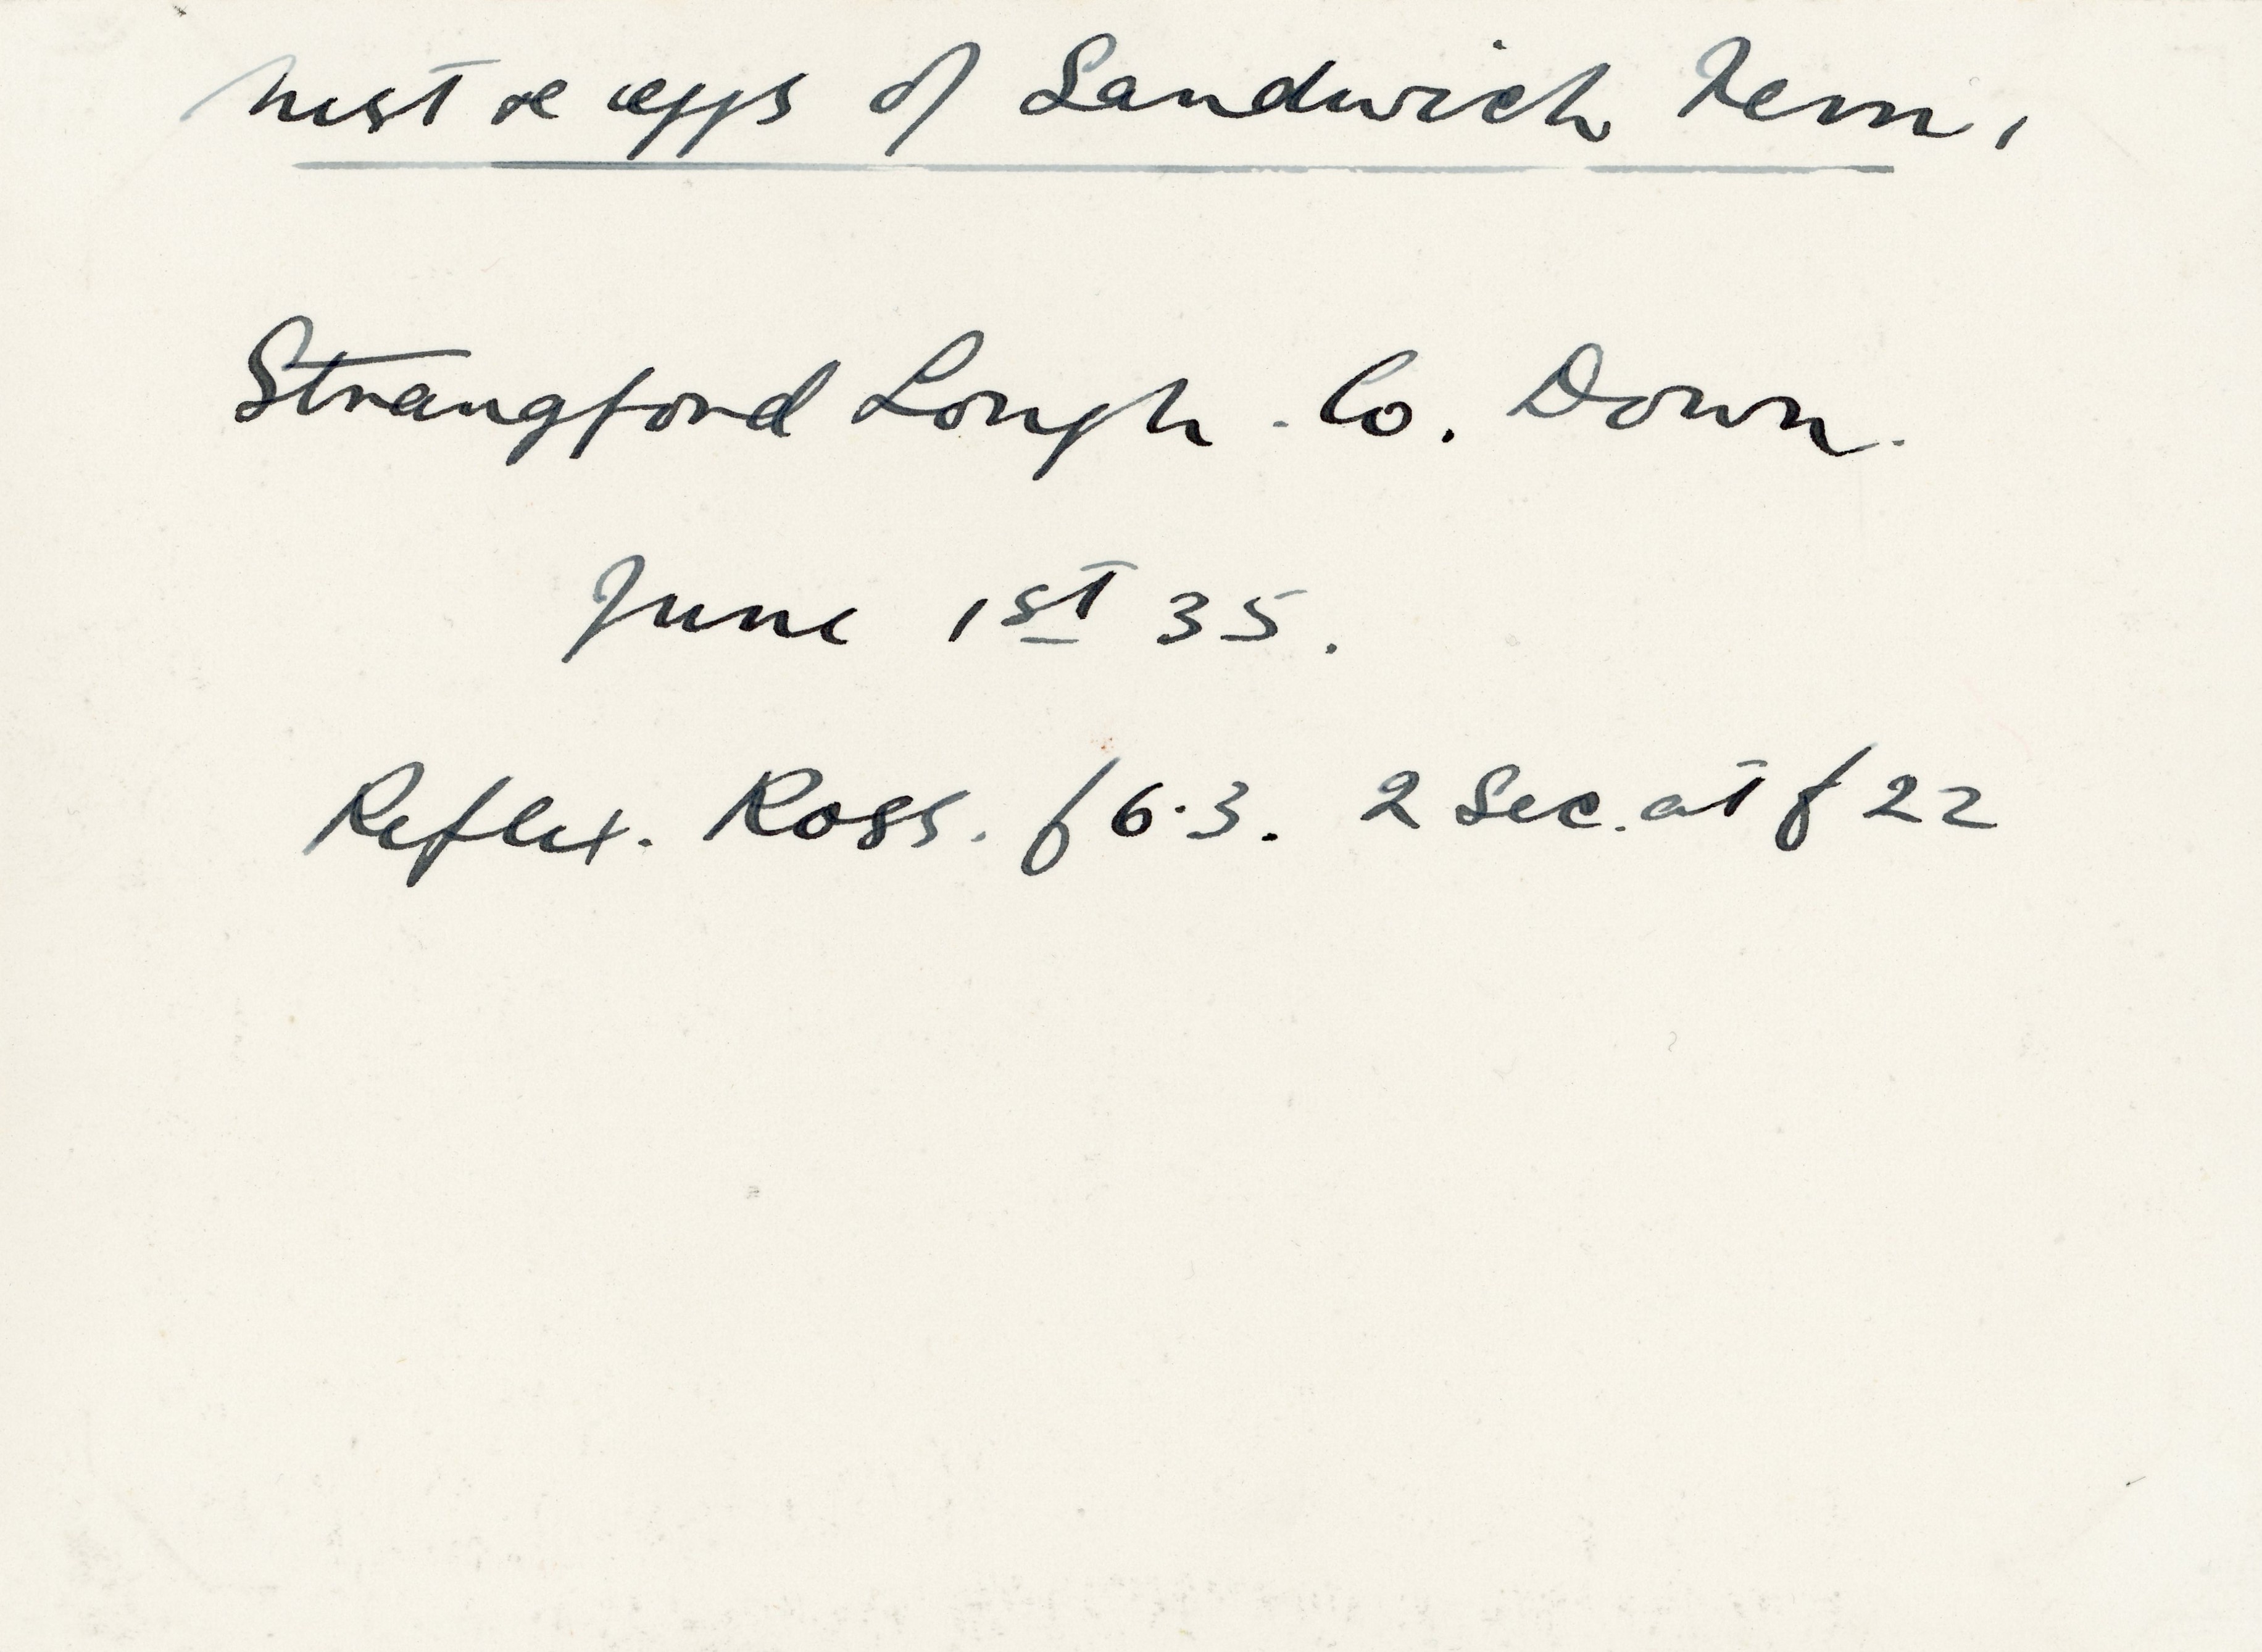 Nest & eggs of Sandwich Tern.
Strangford Lough. Co. Down.
June 1st 35.
Reflex. Ross. f6.3. 2 Sec. at f22